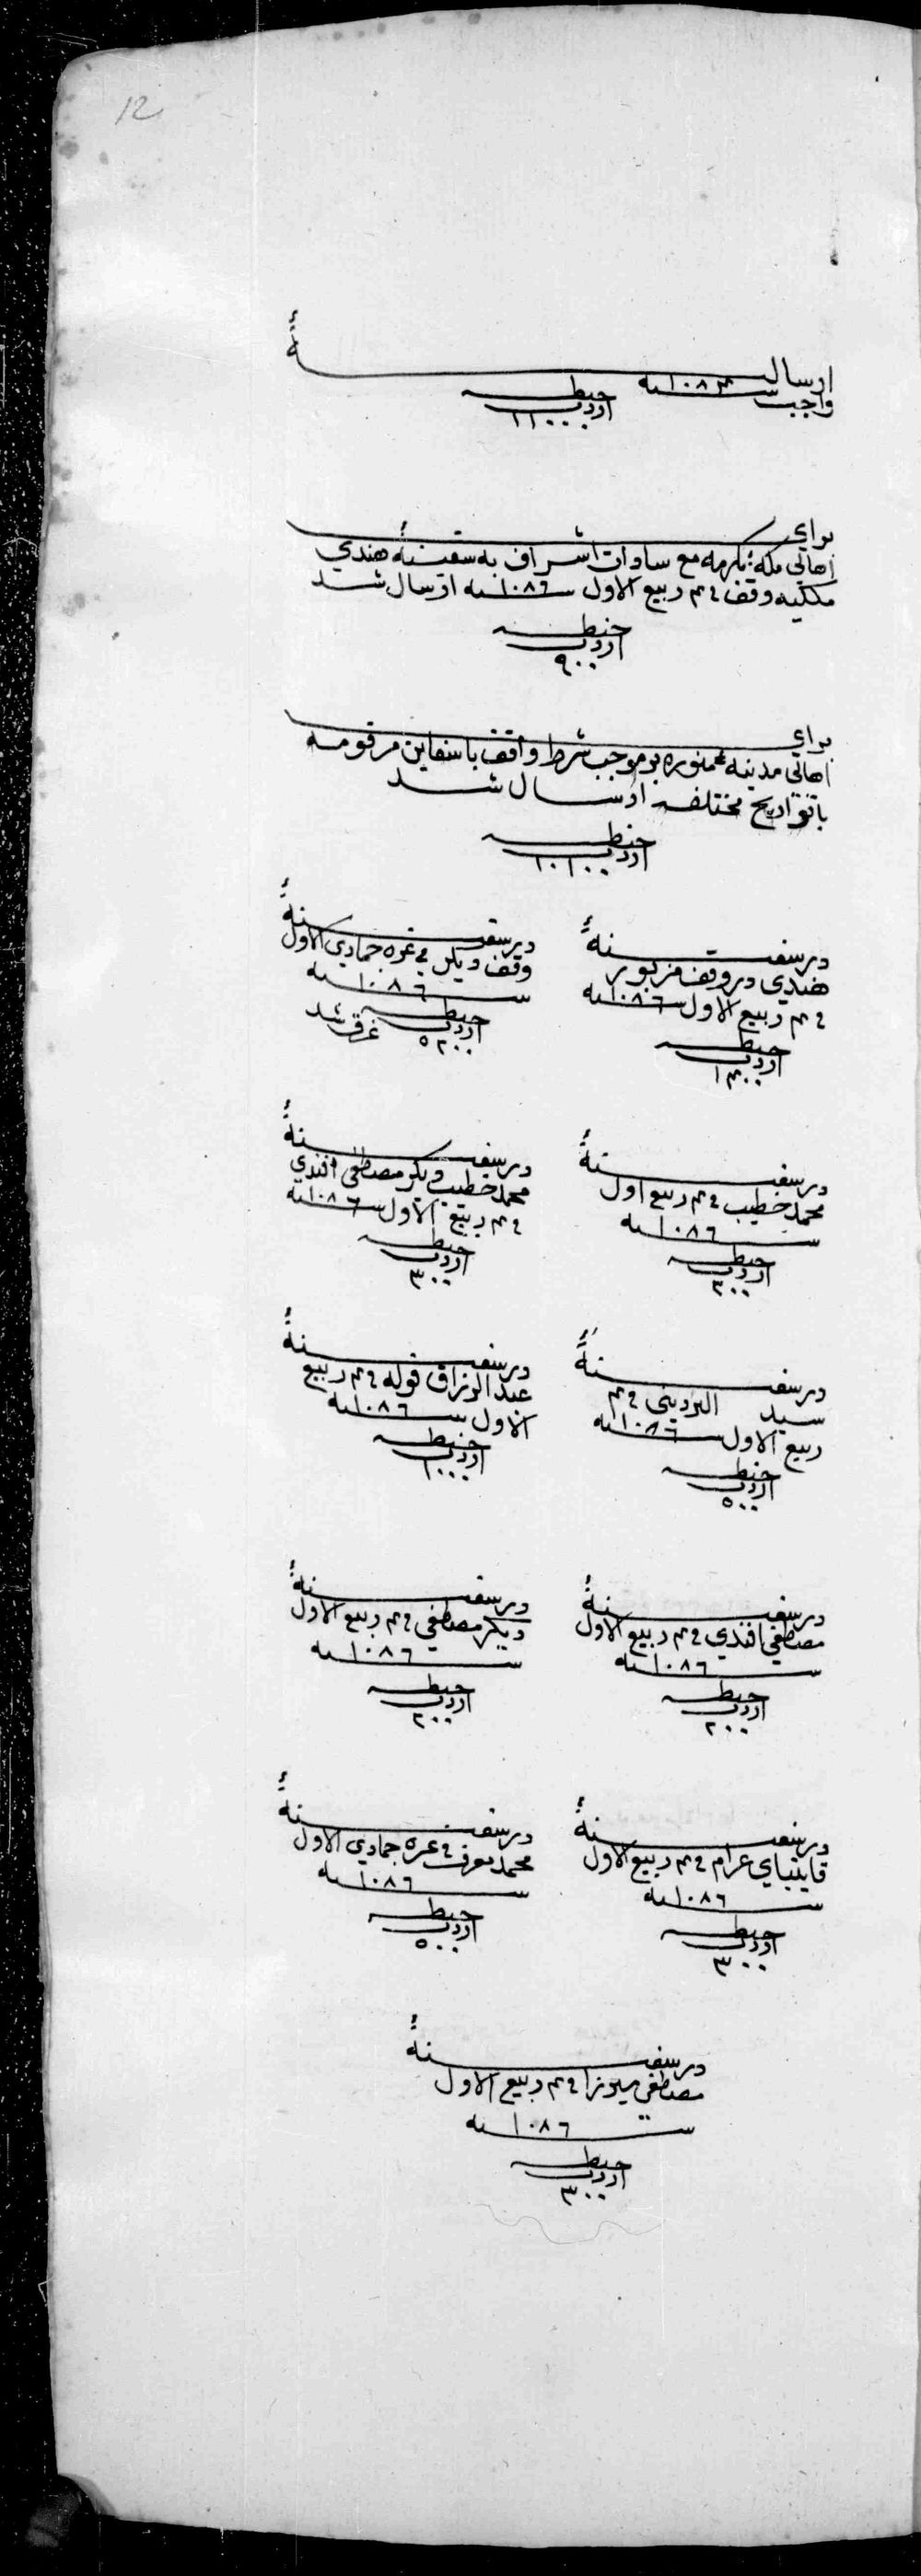 12
ارسالیهٔ
واجب سنه ۱۰۸۴
حنطه
اردب
۱۱۰۰۰
برای
اهالی مکهٔ مکرمه مع سادات اشراف به سفینهٔ هندی
ملکیه وقف فی ۴ م ربیع الاول سنه ۱۰۸٦ ارسال شد
حنطه
اردب
۹۰۰
برای
اهالی مدینهٔ منوره بر موجب شرط واقف با سفاین مرقومه
با تواریخ مختلفه ارسال شد
حنطه
اردب
۱۰۱۰۰
در سفینهٔ
هندی در وقف مزبور
فی ۴ م ربیع الاول سنه ۱۰۸٦
حنطه
اردب
۱۴۰۰
در سفینهٔ
وقف دیکر فی غره جمادی الاول
سنه ۱۰۸٦
حنطه
اردب
۵۲۰۰
غرق شد
در سفینهٔ
محمد خطیب فی ۴ م ربیع اول
سنه ۱۰۸٦
حنطه
اردب
۲۰۰
در سفینهٔ
محمد خطیب دیکر مصطفی افندی
فی ۴ م ربیع الاول سنه ۱۰۸٦
حنطه
اردب
۳۰۰
در سفینهٔ
سید البردینی فی ۴ م
ربیع الاول سنه ۱۰۸٦
حنطه
اردب
۵۰۰
در سفینهٔ
عبد الرزاق قوله فی ۴ م ربیع
الاول سنه ۱۰۸٦
حنطه
اردب
۱۰۰۰
در سفینهٔ
مصطفی افندی فی ۴ م ربیع الاول
سنه ۱۰۸٦
حنطه
اردب
۲۰۰
در سفینهٔ
دیکر مصطفی فی ۴ م ربیع الاول
سنه ۱۰۸٦
حنطه
اردب
۲۰۰
در سفینهٔ
قایتبای عزام فی ۴ م ربیع الاول
سنه ۱۰۸٦
حنطه
اردب
۳۰۰
در سفینهٔ
محمد معرف فی غره جمادی الاول
سنه ۱۰۸٦
حنطه
اردب
۵۰۰
در سفینهٔ
مصطفی میرزا فی ۴ م ربیع الاول
سنه ۱۰۸٦
حنطه
اردب
۳۰۰